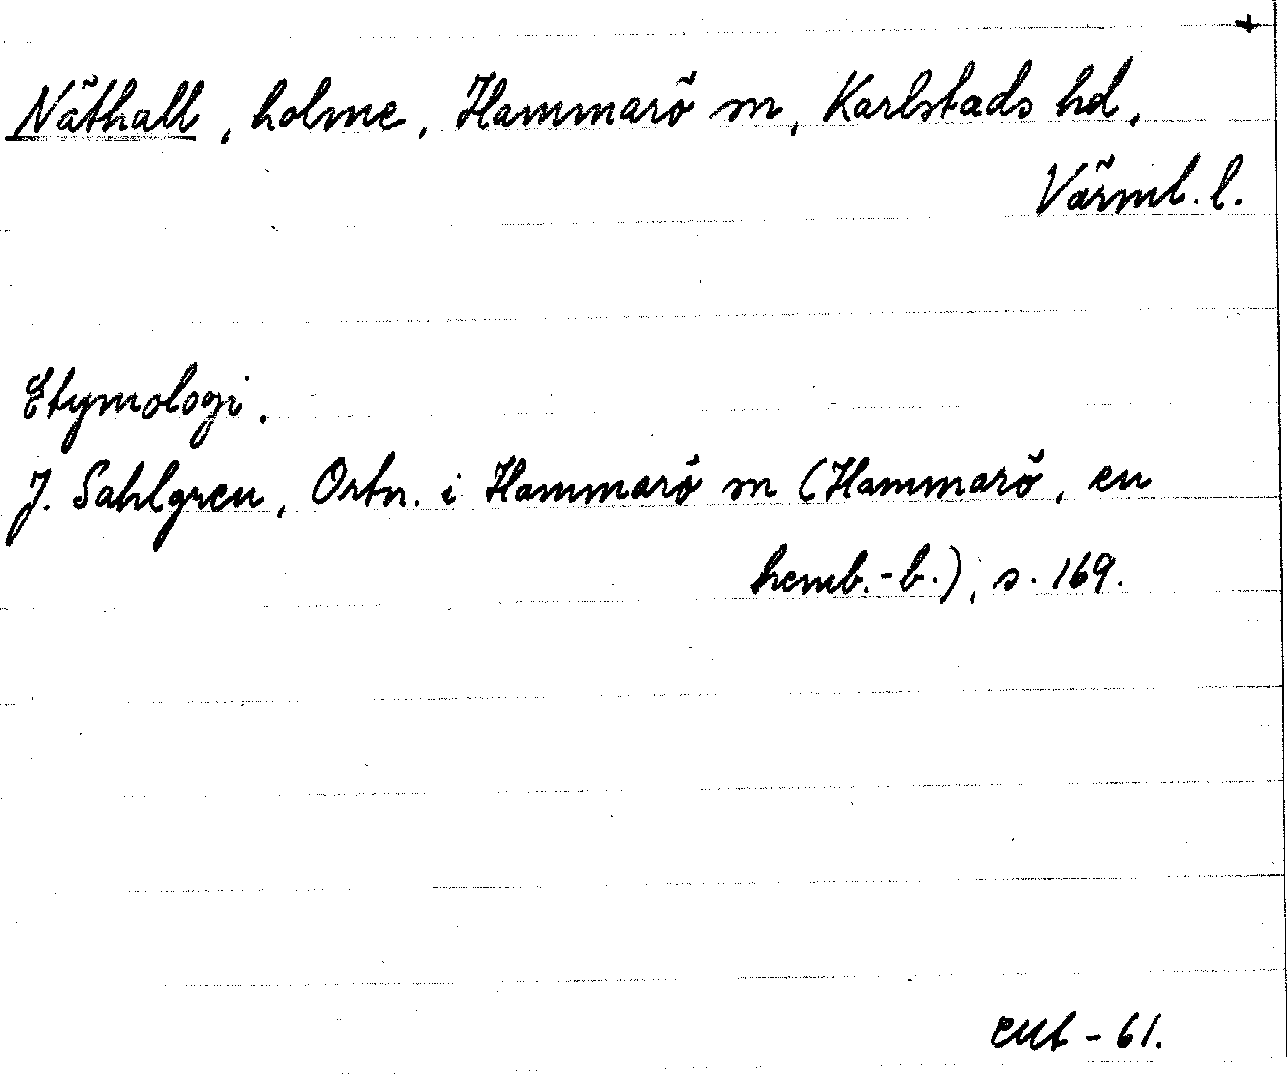 +
Näthall, holme, Hammarö sn, Karlstads hd,
Värml. l.
Etymologi.
J. Sahlgren, Ortn. i Hammarö sn (Hammarö, en
hemb.-b.), s. 169.
-61.